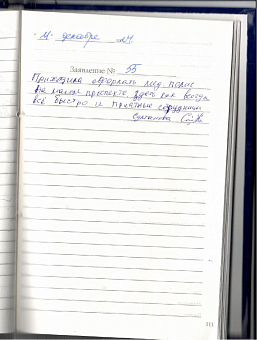 " 11 " декабря 2017.
Заявление № 55
Приходила оформлять мед полис
на малом проспекте здесь как всегда
всё быстро и приятные сотрудники
Султанова
111